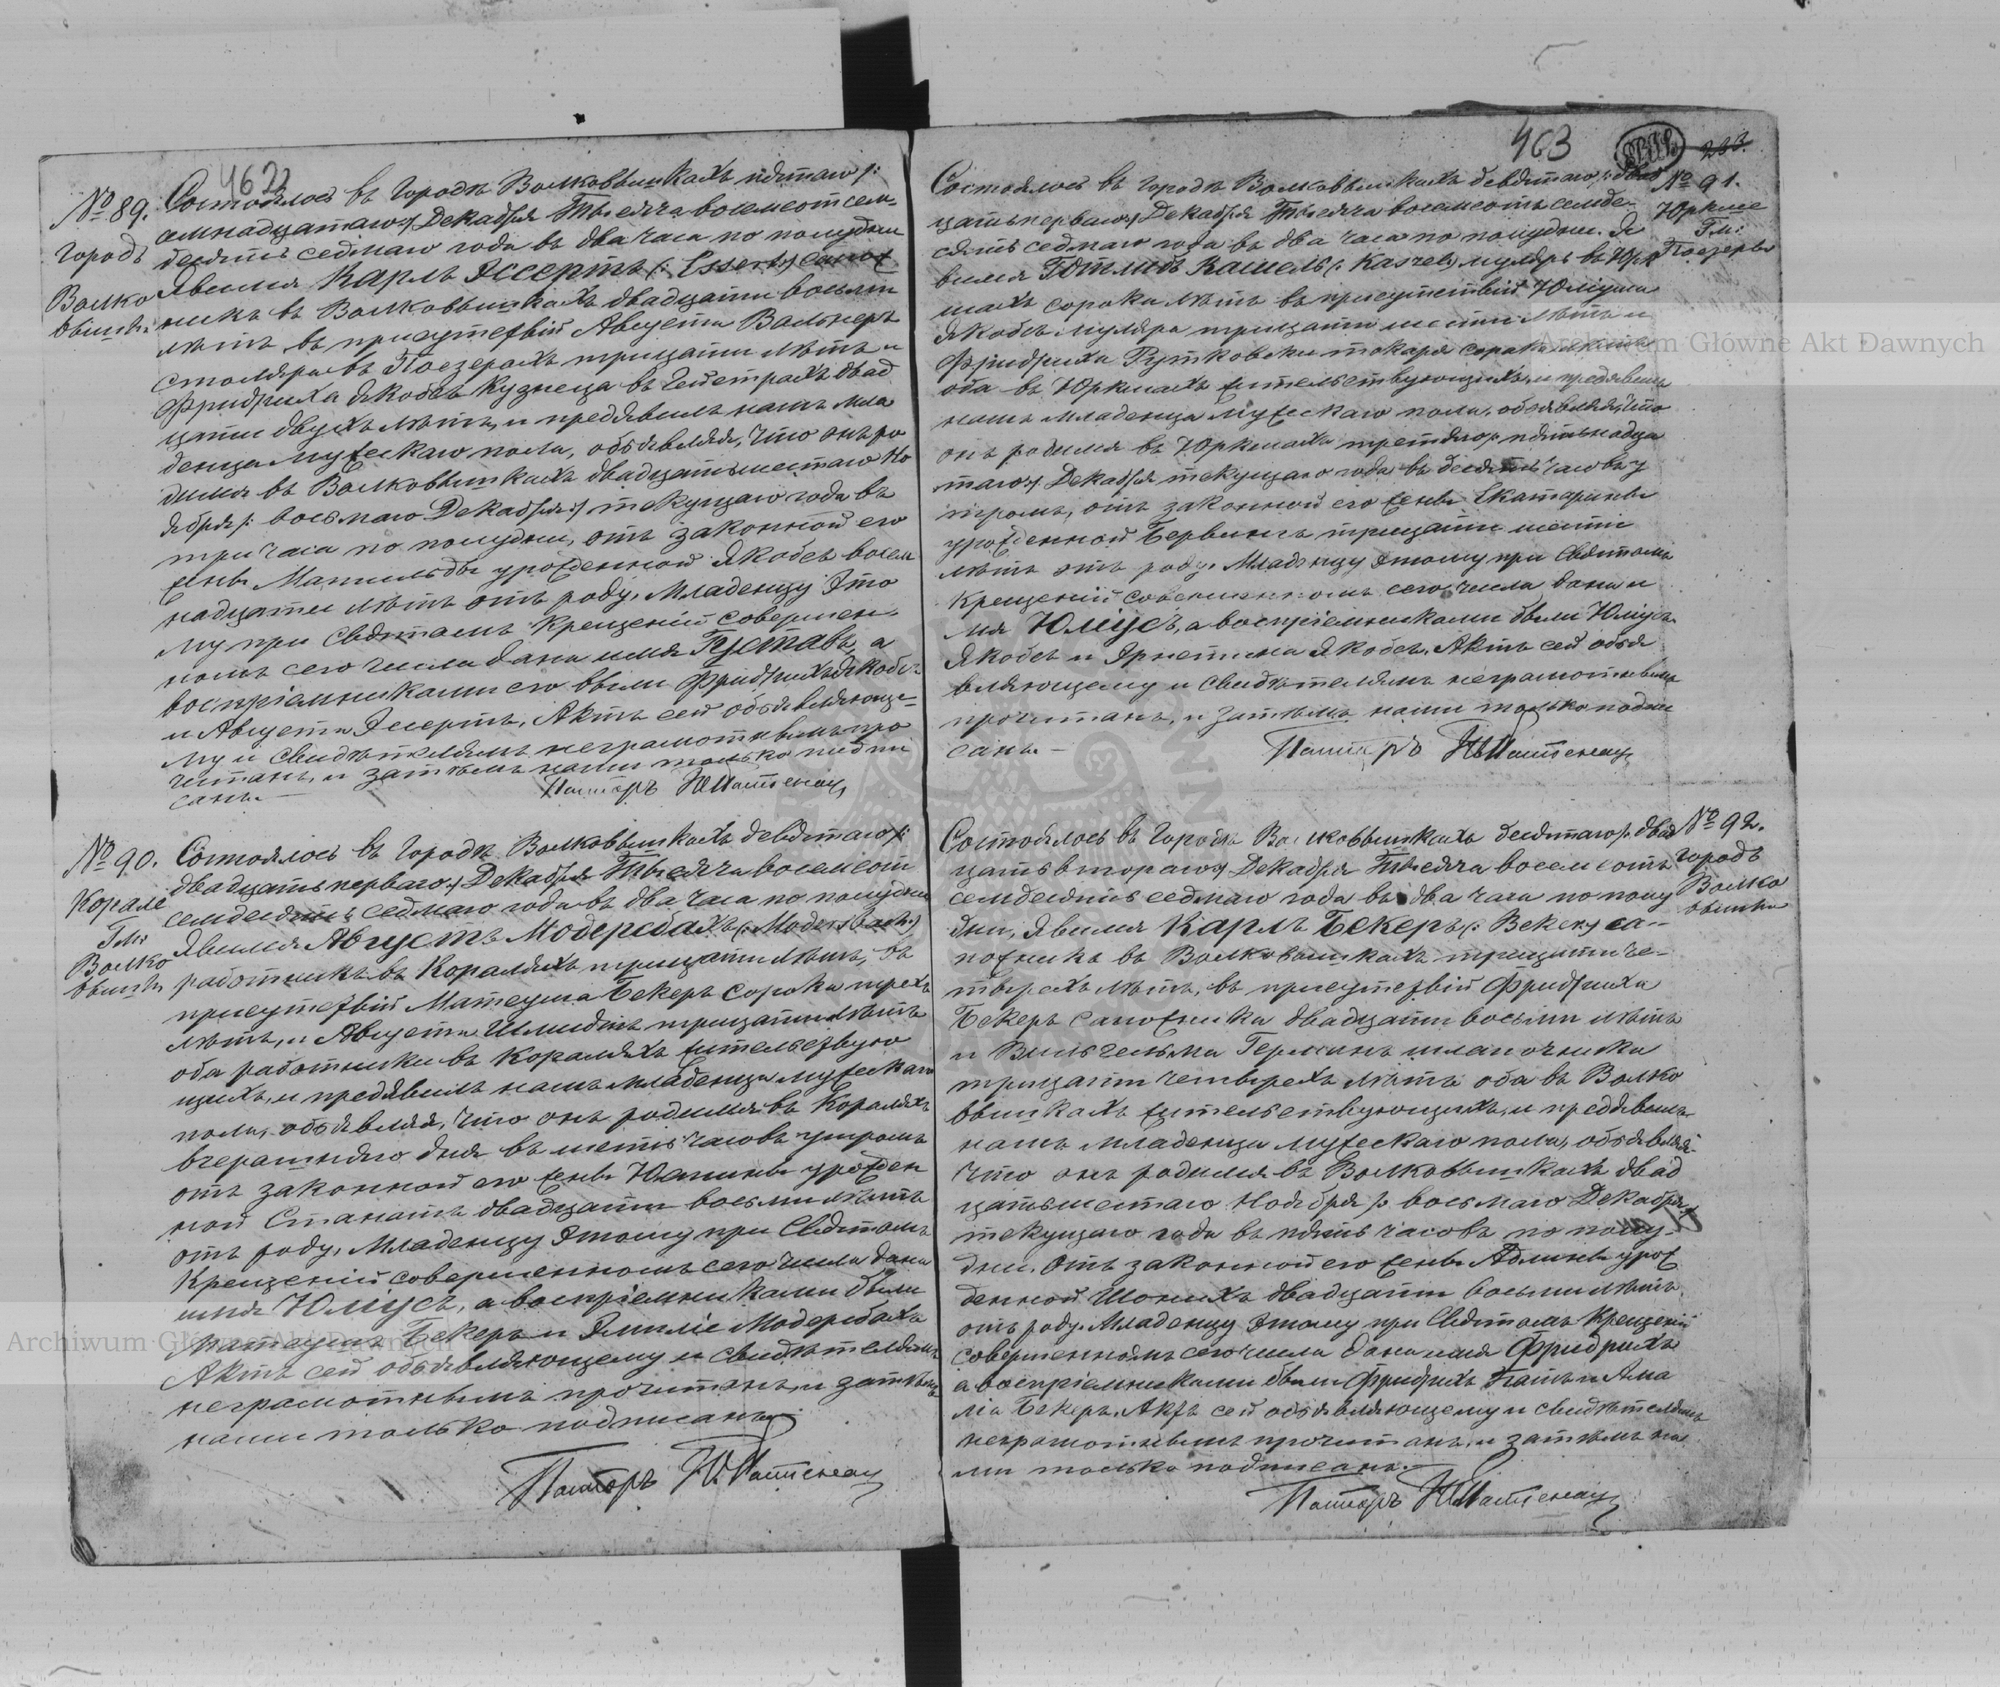 462
№ 89.
Городъ
Волко
вышки
Состоялось въ Городѣ Волковышкахъ пятаго /:
семнадцатаго:/ Декабря Тысяча восемсотъ сем-
десятъ седмаго года въ два часа по полудни
Явился Карлъ Эссертъ (: Essert:) сапож
никъ въ Волковышкахъ двадцати восьми
лѣтъ, въ присутствіи Августа Вальнеръ
столяра въ Поезерахъ тридцати лѣтъ и
Фридриха Якобсъ Кузнеца въ двад
цати двухъ лѣтъ, и предъявилъ намъ мла
денца мужескаго пола, объявляя, что онъ ро
дился въ Волковышкахъ двадцать шестаго Но
ября /: восьмаго Декабря :/ текущаго года въ
три часа по полудни, отъ законной его
жены Матильды урожденной Якобсъ восем
надцати лѣтъ отъ роду. Младенцу Это
му при Святомъ Крещеніи совершен-
номъ сего числа дано имя Густавъ, а
воспріемниками его были Фридрихъ Якобсъ
и Августа Эссертъ. Актъ сей объявляюще-
му и свидѣтелямъ неграмотнымъ про
читанъ, и затѣмъ нами только подпи
санъ.—
Пасторъ
№ 90.
Корале
Гм:
Волко
вышки
Состоялось въ Городѣ Волковышкахъ девятаго /:
двадцать перваго:/ Декабря Тысяча восемсотъ
семдесятъ седмаго года въ два часа по полудни
явился Августъ Модерсбахъ (: Modersbach:)
работникъ въ Кораляхъ тридцати лѣтъ, въ
присутствіи Матеуша Бекеръ сорока трехъ
лѣтъ, и Августа Шмидтъ тридцати лѣтъ
оба работники въ Кораляхъ жительствую
щихъ, и предъявилъ намъ младенца мужескаго
пола, объявляя, что онъ родился въ Кораляхъ
вчерашняго дня въ шесть часовъ утромъ
отъ законной его жены Юстины урожден
ной двадцати восьми лѣтъ
отъ роду. Младенцу Этому при Святомъ
Крещеніи совершенномъ сего числа дано
имя Юліусъ, а воспріемниками были
Матеушъ Бекеръ и Эмиліе Модерсбахъ
Актъ сей объявляющему и свидѣтелямъ
неграмотнымъ прочитанъ, и затѣмъ
нами только подписанъ.
Пасторъ
463
233.
№ 91.
Юркше
Гм:
Поезеры
Состоялось въ Городѣ Волковышкахъ девятаго /: двад
цать перваго:/ Декабря Тысяча восемсотъ семде-
сятъ седмаго года въ два часа по полудни. Я
вился Готлибъ муляръ въ Юрк
шахъ сорока лѣтъ въ присутствіи Юліуша
Якобсъ муляра тридцати шести лѣтъ и
Фридриха Рутковски токаря сорока лѣтъ
оба въ Юркшахъ жительствующихъ, и предъявилъ
намъ младенца мужескаго пола, объявляя, что
онъ родился въ Юркшахъ третьяго /: пятьнадца
таго:/ Декабря текущаго года въ десять часовъ у
тромъ, отъ законной его жены Екатарины
урожденной тридцати шести
лѣтъ отъ роду. Младенцу Этому при Святомъ
Крещеніи совершенномъ сего числа дано и
мя Юліусъ, а воспріемниками были Юліусъ
Якобсъ и Эрнестина Якобсъ. Актъ сей объя
вляющему и свидѣтелямъ неграмотнымъ
прочитанъ, и затѣмъ нами только подпи
санъ.—
Пасторъ
№ 92.
Городъ
Волко
вышки
Состоялось въ Городѣ Волковышкахъ десятаго /: двад
цать втораго:/ Декабря Тысяча восемсотъ
семдесятъ седмаго года въ два часа по полу
дни, Явился Карлъ Бекеръ (: Beker:) са-
пожникъ въ Волковышкахъ тридцати че-
тырехъ лѣтъ, въ присутствіи Фридриха
Бекеръ сапожника двадцати восьми лѣтъ
и Вильгельма Германъ шлапочника
тридцати четырехъ лѣтъ оба въ Волко
вышкахъ жительствующихъ, и предъявилъ
намъ младенца мужескаго пола, объявляя
что онъ родился въ Волковышкахъ двад
цать шестаго Ноября /: восьмаго Декабря :/
текущаго года въ пять часовъ по полу-
дни. Отъ законной его жены урож
денной двадцати восьми лѣтъ
отъ роду. Младенцу Этому при Святомъ Крещеніи
совершенномъ сего числа дано имя Фридрихъ
а воспріемниками были Фридрихъ и Ама
лія Бекеръ. Актъ сей объявляющему и свидѣтелямъ
неграмотнымъ прочитанъ, и затѣмъ на
ми только подписанъ.—
Пасторъ
Archiwum Główne Akt Dawnych
Archiwum Główne Akt Dawnych